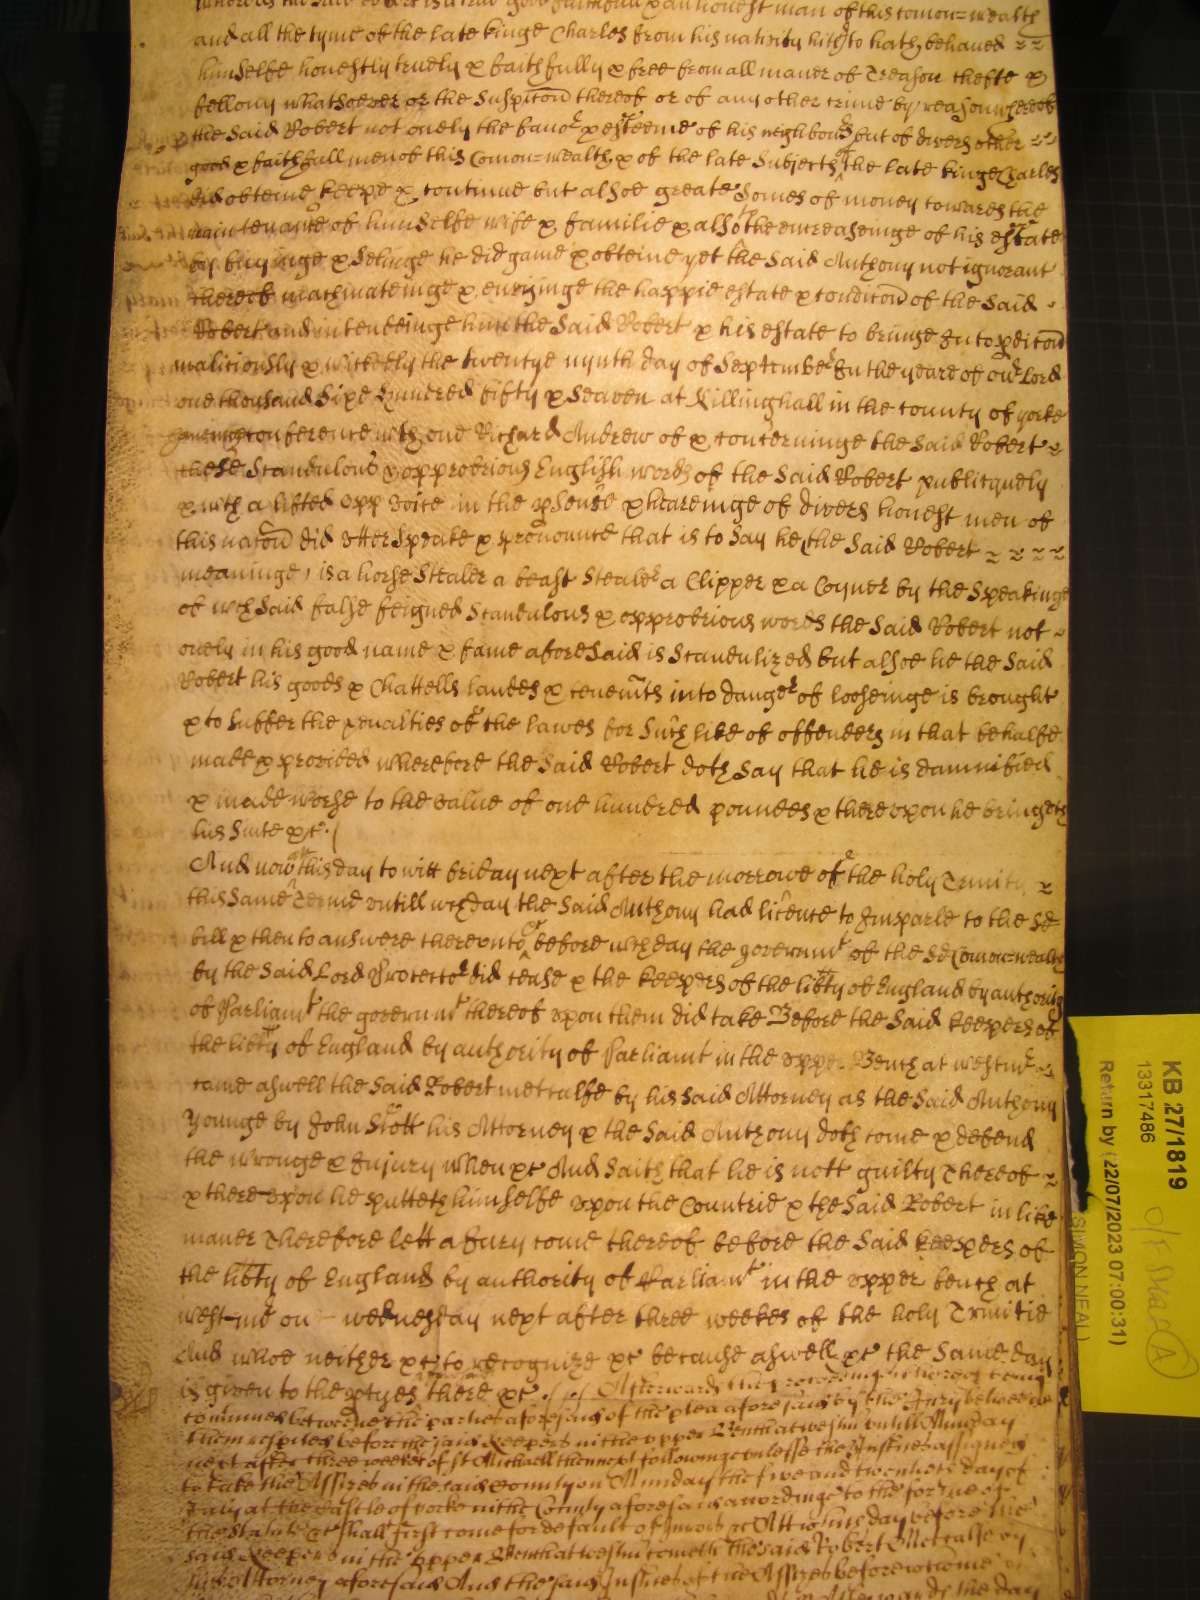 whereas the said Robert is a true good faithfull & an honest man of this comon=wealth
and all the tyme of the late kinge Charles from his nativity hitħto hath behaved
himselfe honestly truely & faithfully & free from all maner of Treason thefte &
fellony whatsoever or the suspicon thereof or of any other crime by reason whereof
the said Robert not onely the favor & esteeme of his neighbours but of divers other
good & faithfull men of this Comon=wealth & of the late Subjects of the late kinge Charles
did obteine keepe & continue but alsoe greate Somes of money towards the
maintenance of himselfe wife & familie & also the encreaseinge of his estate
by buyinge & selinge he did gaine & obteine yet the said Anthony not ignorant
thereof machinateinge & envyinge the happie estate & condicon of the said
Robert and intendeinge him the said Robert & his estate to bringe Into pdicon
malitiously & wickedly the twentye nynth day of September In the yeare of our Lord
one thousand Sixe hundred fifty & Seaven at Killinghall in the county of yorke
haveing conference with one Richard Andrew of & concerninge the said Robert
these Scandulous & opprobrious English words of the said Robert publiquely
& with a lifted upp voice in the psence & heareinge of divers honest men of
this nacon did utter Speake & pronounce that is to say he (the said Robert
meaninge) is a horse stealer a beast stealer a Clipper & a Coyner by the Speakinge
of wch said false feigned Scandulous & opprobrious words the said Robert not
onely in his good name & fame aforesaid is Scandulized but alsoe he the said
Robert his goods & Chattells landes & tenemts into danger of looseinge is brought
& to suffer the penalties of the lawes for such like of offenders in that behalfe
made & provided wherefore the said Robert doth say that he is damnified
& made worse to the value of one hundred poundes & thereupon he bringeth
his suite &c.
And now att this day to witt friday next after the morrowe of the holy Trinity
this same Terme untill wch day the said Anthony had licence to Imparle to the sd
bill & then to answere thereunto &c before wch day the governmt of the sd Comon=wealth
by the said Lord Protector did cease & the keepers of the libty of England by authority
of Parliamt the governmt thereof upon them did take Before the said keepers of
the libty of England by authority of Parliamt in the upper Bench at westmr
came aswell the said Robert metcalfe by his said Attorney as the said Anthony
Younge by John Scott his Attorney & the said Anthony doth come & defend
the wronge & Injury when &c And saith that he is nott guilty Thereof
& there upon he putteth himselfe upon the Countrie & the said Robert in like
maner Therefore lett a Jury come thereof before the said keepers of
the libty of England by authority of Parliamt in the upper bench at
westmr on wednesday next after three weekes of the holy Trinitie
And whoe neither &c to recognize &c because aswell &c the same day
is given to the ptyes there &c. Afterwards the proceeding thereof being
continued betweene the parties aforesaid of the plea aforesaid by the Jury betweene
them respited before the said Keepers in the upper Bench at westmr untill Munday
next after three weekes of St Michaell then next following unlesse the Justices assigned
to take the Assizes in the said County on Munday the five and twentieth day of
July at the Castle of yorke in the County aforesaid accordinge to the forme of
the Statute &c shall first come for default of Jurors &c Att which day before the
said Keepers in the upper Bench at westmr cometh the said Robert Metcalfe by
his Attorney aforesaid And the said Justices of the Assizes before whome
KB 27/1819
13317486
Return by (22/07/2023 07:00:31)
SIMON NEAL)
A